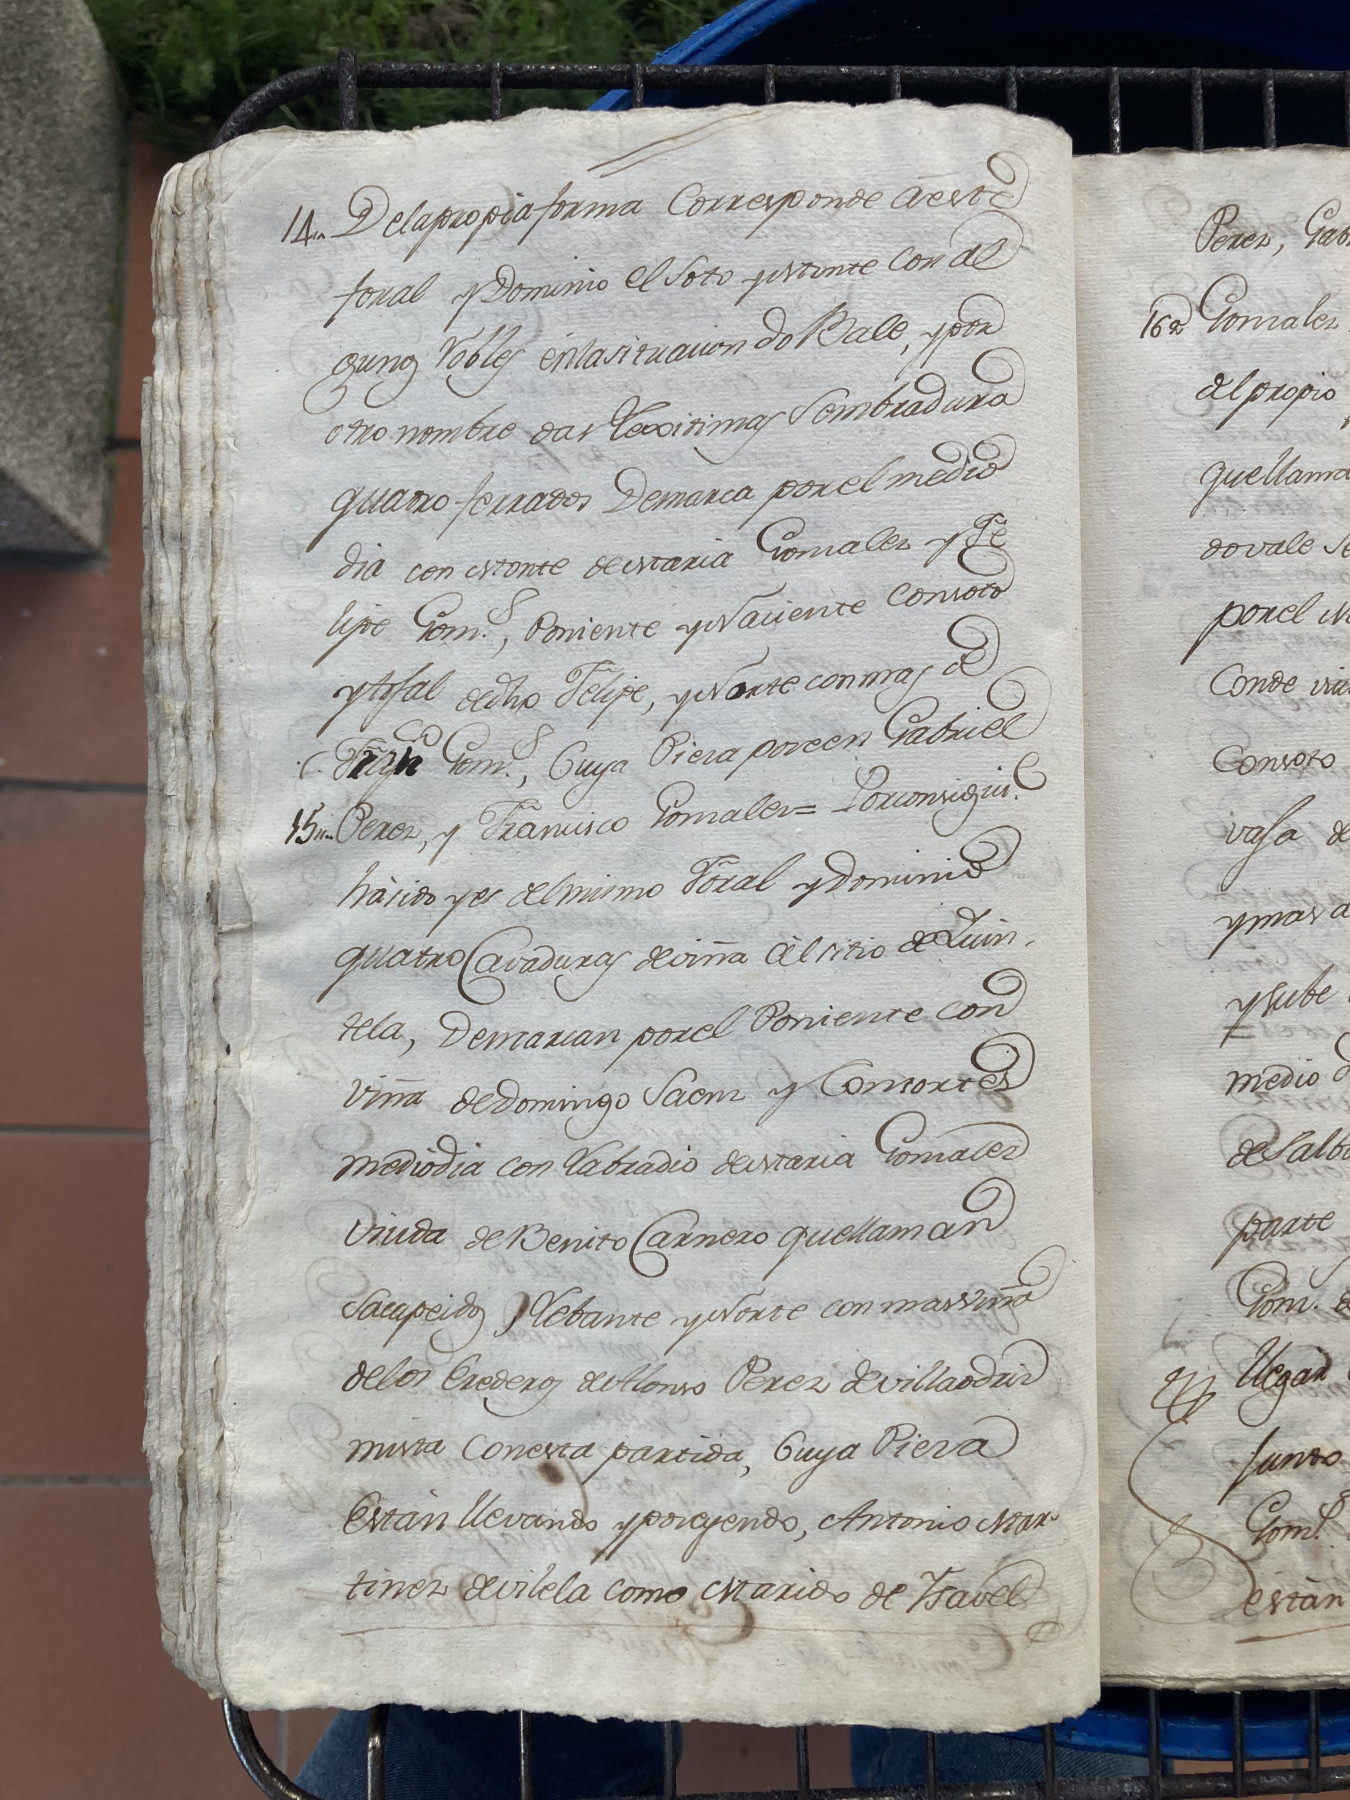 14.. Delapropia forma Corresponde à este
foral y Dominio el Soto y Monte con al
gunos Robles enla situacion do Bale, y por
otro nombre das Lexitimas Sembradura
quatro ferrados Demarca por el medio
dia con Monte de Maria Gomalez y Fe
lipe Gom.s, Poniente y Naciente Con soto
y tojal de dho Felipe, y Norte con mas de
Fran.co Gom.s, Cuya Pieza poseen Gabriel
15.. Perez, y Francisco Gomalez= Por consigui.e
hà sido y es del mismo Foral y Dominio
quatro Cavaduras de viña àl sitio de Quin-
tela, Demarcan por el Poniente con
viña de Domingo Saenz y Consortes
mediodia con Labradio de Maria Gomalez
viuda de Benito Carnero que llaman
Sacapeidos, Lebante y Norte con mas viña
delos Erederos de Alonso Perez de villaodriz
mista con esta partida, Cuya Pieza
Están llevando y poseyendo, Antonio Mar-
tinez de vilela como Marido de Ysavel
Perez, Gab
16.. Gomalez
del propio
que llama
do vale Se
por el N
Conde
Con soto
vasa de
y mas d
y sube
medio d
de Salb
parte
Gom.s d
llegar
junto
Gom.s
están